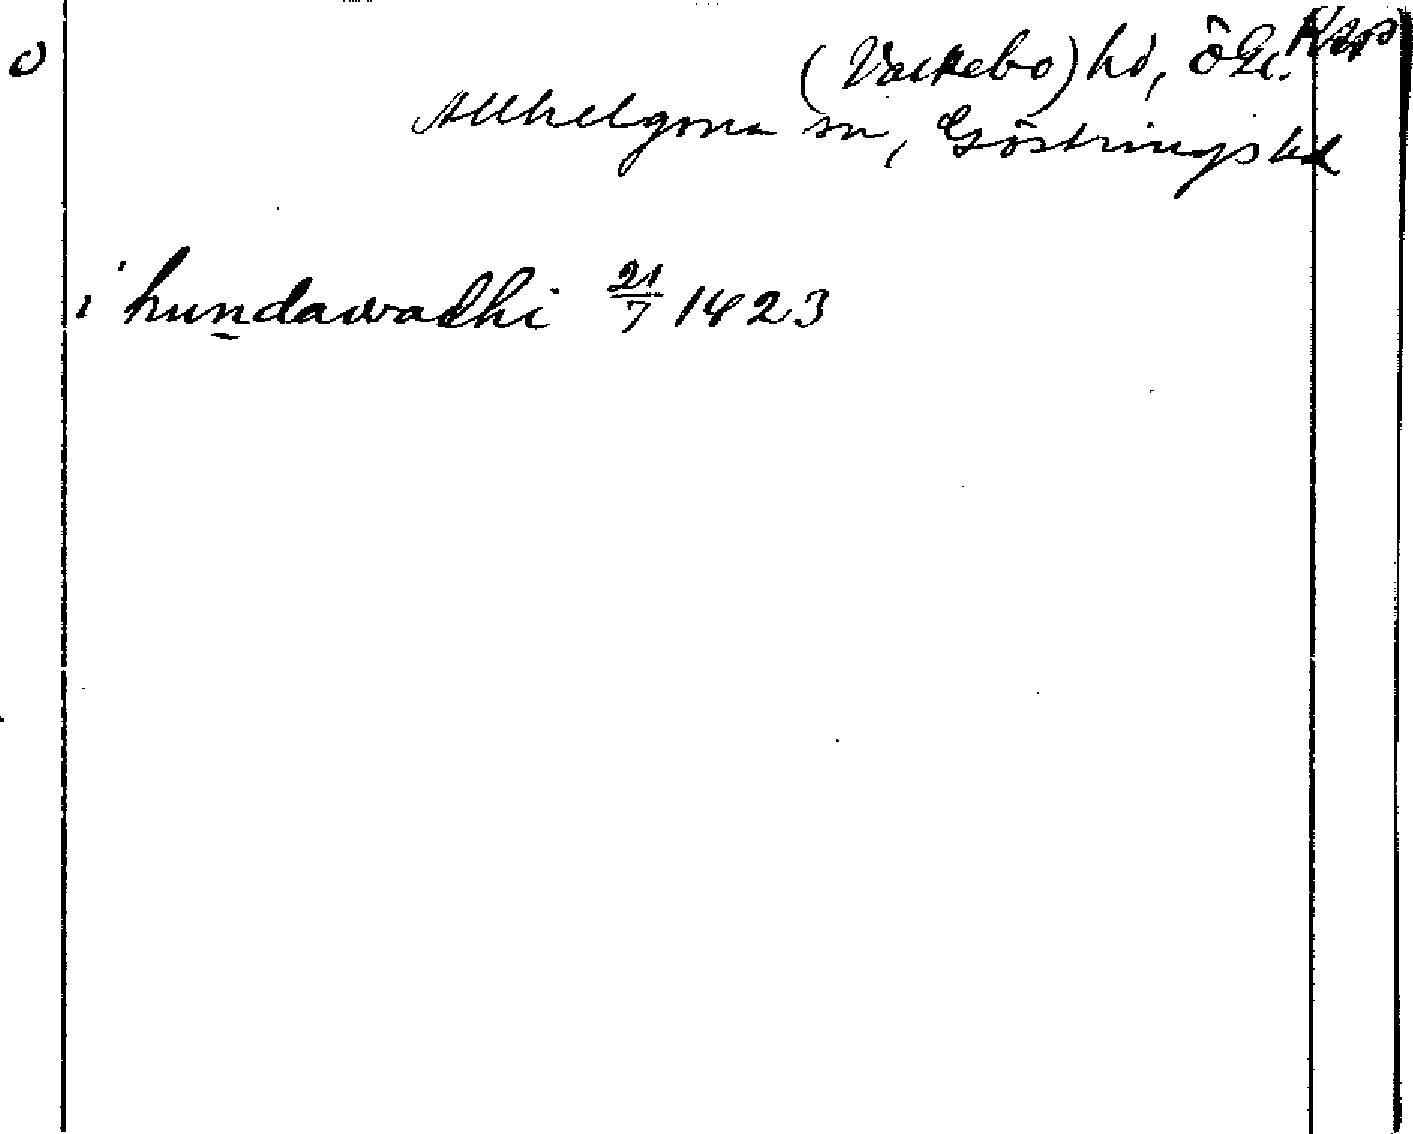 (Valkebo) hd, Ögl.
Allhelgona sn, Göstrings hd
i hundawadhi 21/7 1423